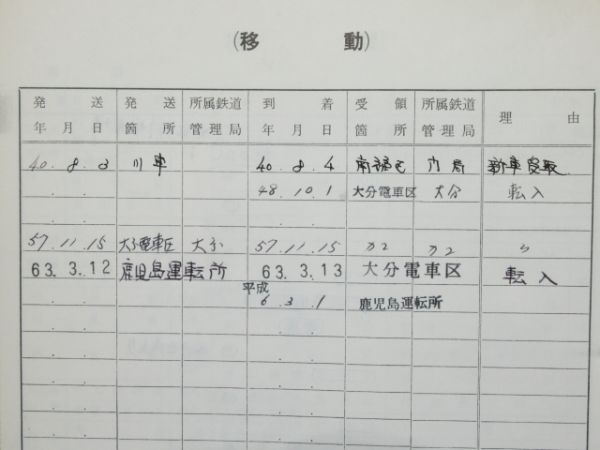 (移動)
発送年月日 発送箇所 所属鉄道管理局 到着年月日 受領箇所 所属鉄道管理局 理由
40.8.3 川車 40.8.4 南福岡 門局 新車受取
48.10.1 大分電車区 大分 転入
57.11.15 大分電車区 大分 57.11.15 カコ カコ 〃
63.3.12 鹿児島運転所 63.3.13 大分電車区 転入
平成
6.3.1 鹿児島運転所